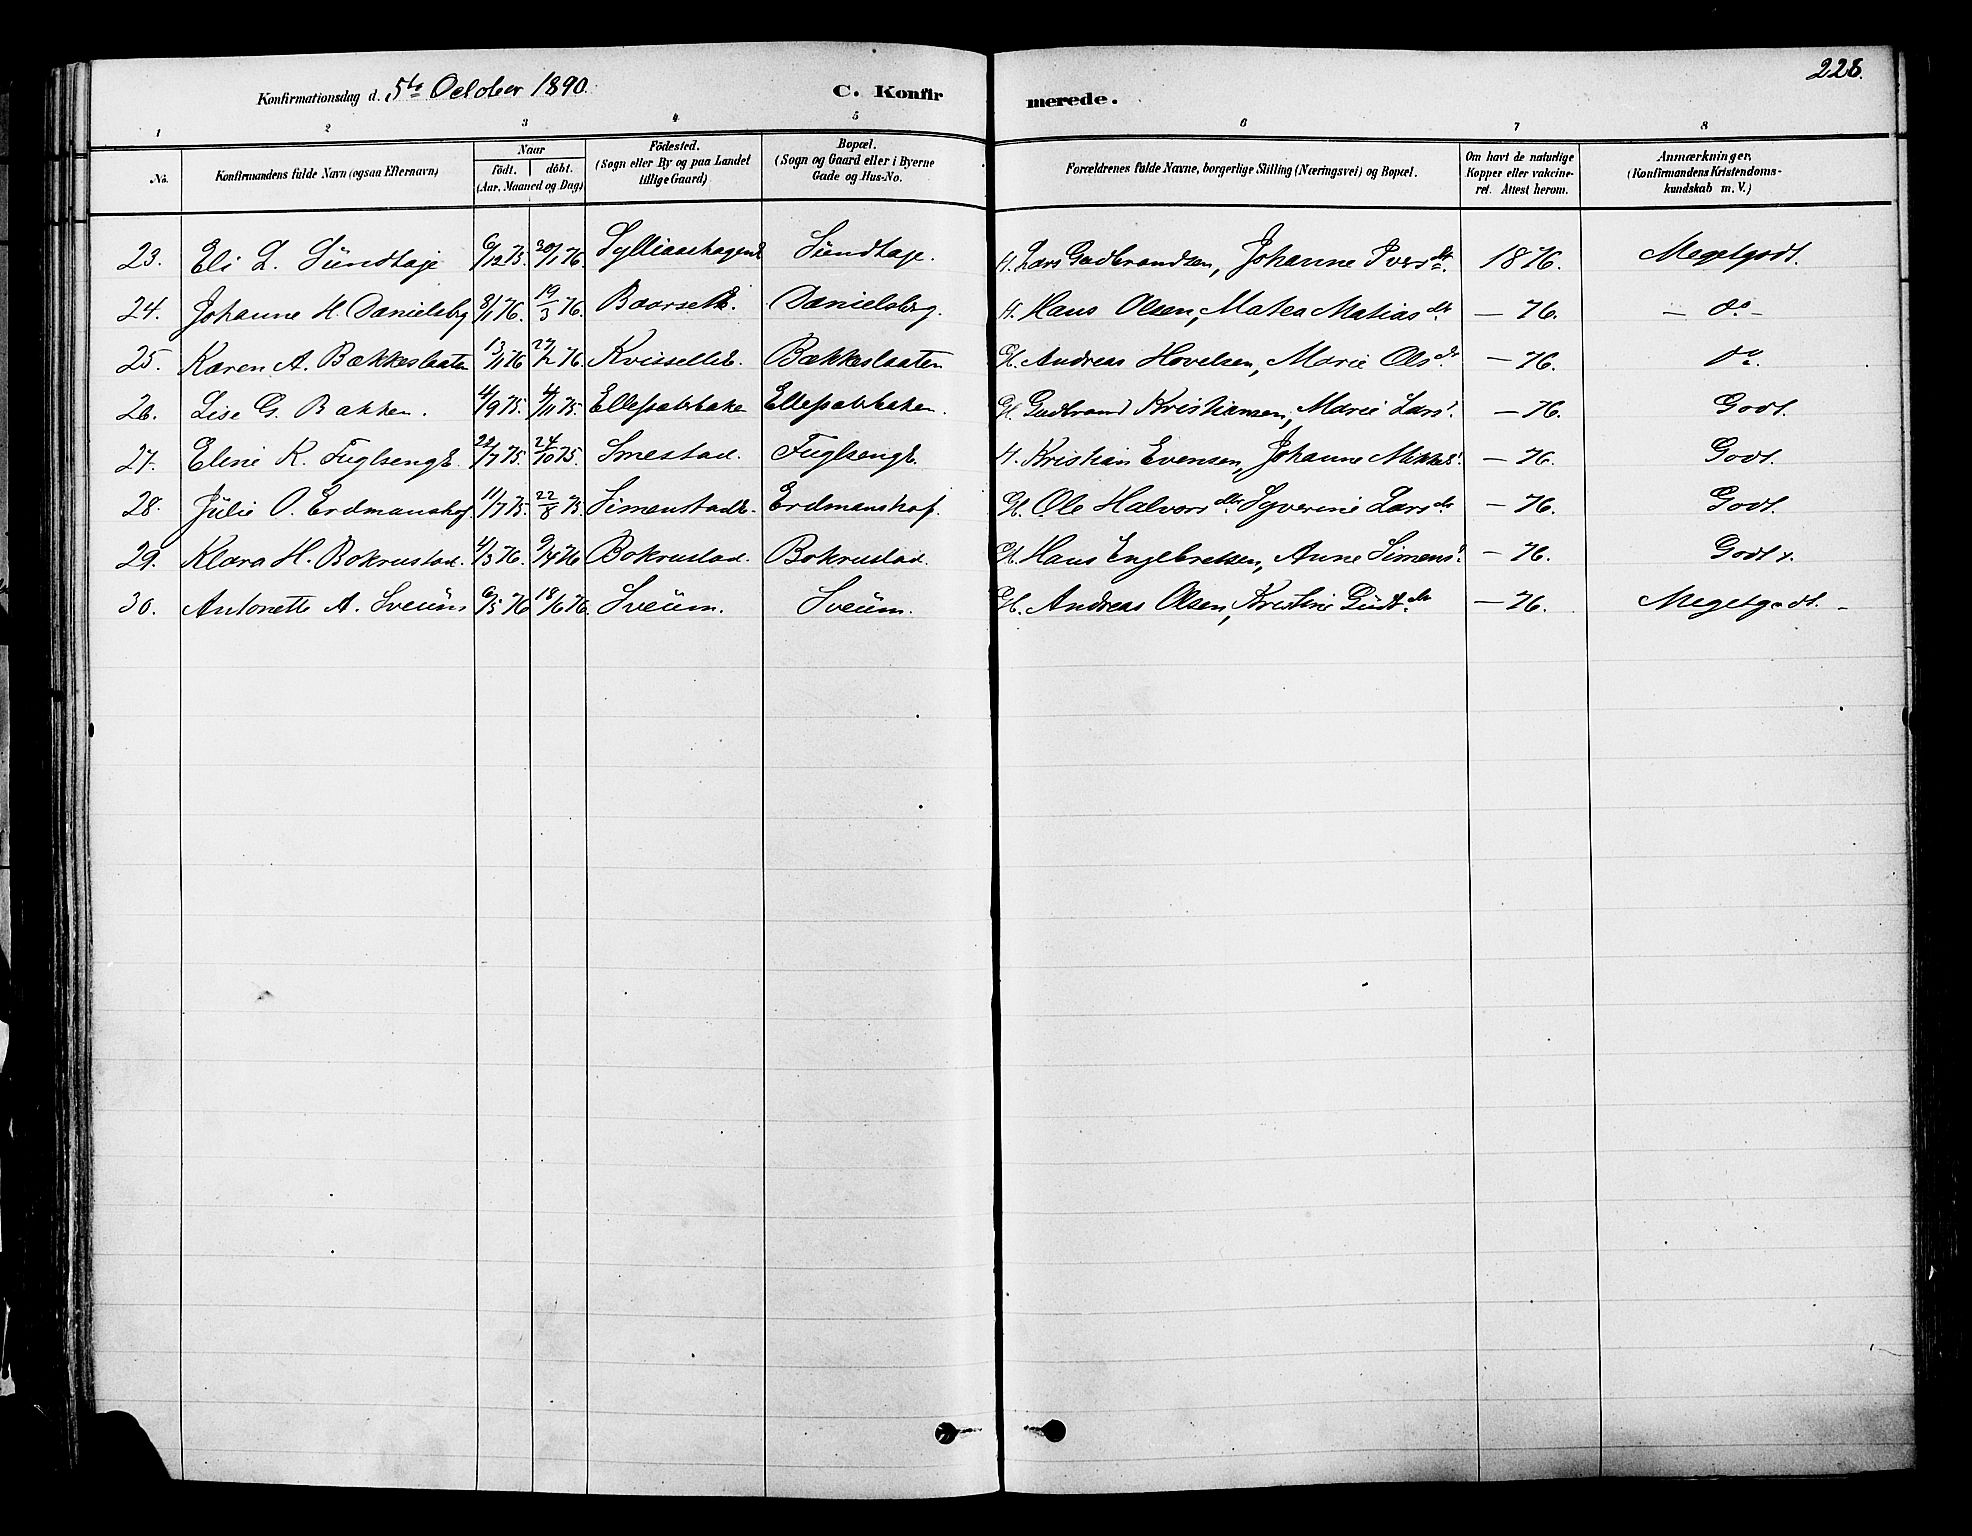 Konfirmationsdag d. 5te October 1890. C. Konfirmerede. 228.
1 2 3 4 5 6 7 8
No. Konfirmandens fulde Navn (ogsaa Efternavn) Naar födt. döbt. (Aar, Maaned og Dag) Födested. (Sogn eller By og paa Landet tillige Gaard) Bopæl. (Sogn og Gaard eller i Byerne Gade og Hus-No. Forældrenes fulde Navne, borgerlige Stilling (Næringsvei) og Bopæl. Om havt de naturlige Kopper eller vakcineret. Attest herom. Anmærkninger, (Konfirmandens Kristendomskundskab m. V.)
23. Eli L. Sundtaje 6/12 75. 30/1 76. Sundtaje. H. Lars Gudbrandsen, Johanne Iversdr. 1876. Megetgodt.
24. Johanne H. Danielsberg 8/1 76. 19/3 76. Baarseth. Danielsberg. H. Hans Olsen, Matea Matiasdr. — 76. — do —
25. Karen A. Bækkeslaaten 13/1 76 27/2 76. Bækkeslaaten G. Andreas Hovelsen, Marie Olsdr — 76. do.
26. Lise G. Bakken. 4/9 75. 4/11 75. G. Gudbrand Kristiansen, Marie Larsd. — 76. Godt.
27. Eline K. Fuglsenge. 22/7 75. 24/10 75. Smestad. Fuglsenge. H. Kristian Evensen, Johanne Mikkelsd. — 76. Godt.
28. Julie O. Erdmanshof 11/7 75. 22/8 75. Simenstade. Erdmanshof. G. Ole Halvors Syverine Larsdr — 76. Godt.
29. Klara H. Bokrustad. 4/3 76. 9/4 76 Bokrustad. Bokrustad. G. Hans Engebretsen, Anne Simensd. — 76. Godt x.
30. Antonette A. Sveum 6/5 76 18/6 76. Sveum. Sveum. G. Andreas Olsen, Kristine Gudbr. — 76. Megetgodt. —